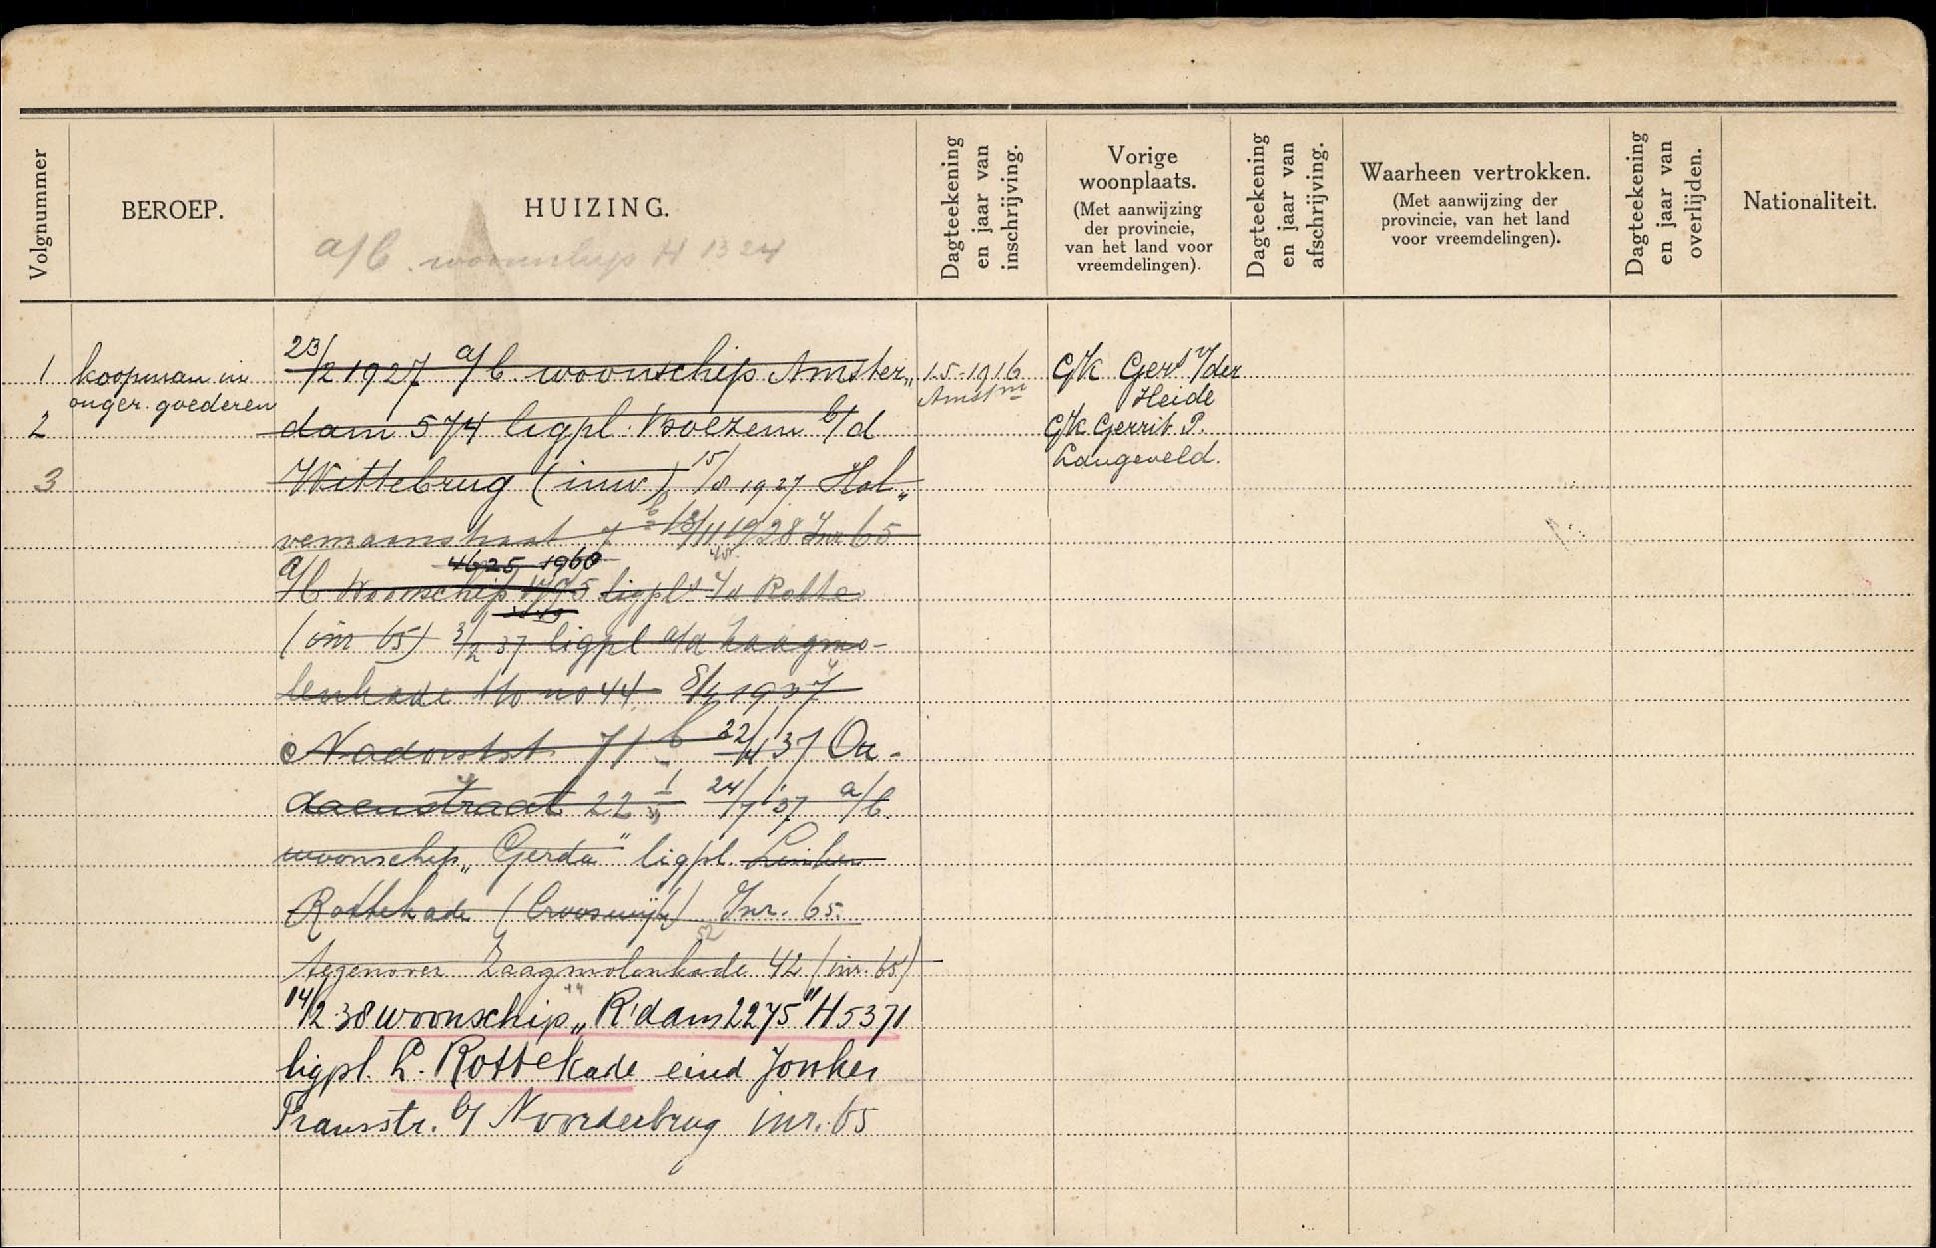 Volgnummer
BEROEP.
HUIZING.
a/b. woonschip H 1324
Dagteekening
en jaar van
inschrijving.
Vorige
woonplaats.
(Met aanwijzing
der provincie,
van het land voor
vreemdelingen).
Dagteekening
en jaar van
afschrijving.
Waarheen vertrokken.
(Met aanwijzing der
provincie, van het land
voor vreemdelingen).
Dagteekening
en jaar van
overlijden.
Nationaliteit.
1 koopman in 23/2 1927 a/b. woonschip Amster„ 1.5-1916 G/k Gert v/der
onger. goederen Amstm Heide
2 dam 574 ligpl. Boezem b/d G/k Gerrit P.
Langeveld.
3 Wittebrug (inw.) 15/8 1927 Hol„
vemaanstraat 7 b 13/11 1928 Inr 65
4625 1960
a/b Woonschip ligpl. i/d Rotte
(inr 65) 3/2 37 ligpl a/d Zaagmo-
lenkade t/o no 44. 8/4 1937
Nadorstst. 71 b 22/4 '37 Ou-
daenstraat 22 24/7 '37 a/b.
woonschip „Gerda" ligpl. Linker
Rottekade (Crooswijk) Inr. 65.
52
tegenover Zaagmolenkade 42 (inr. 65)
44
14/2 38 woonschip „R'dam 2275" H 5371
ligpl. L. Rottekade eind Jonker
Fransstr. b/ Noorderbrug inr. 65